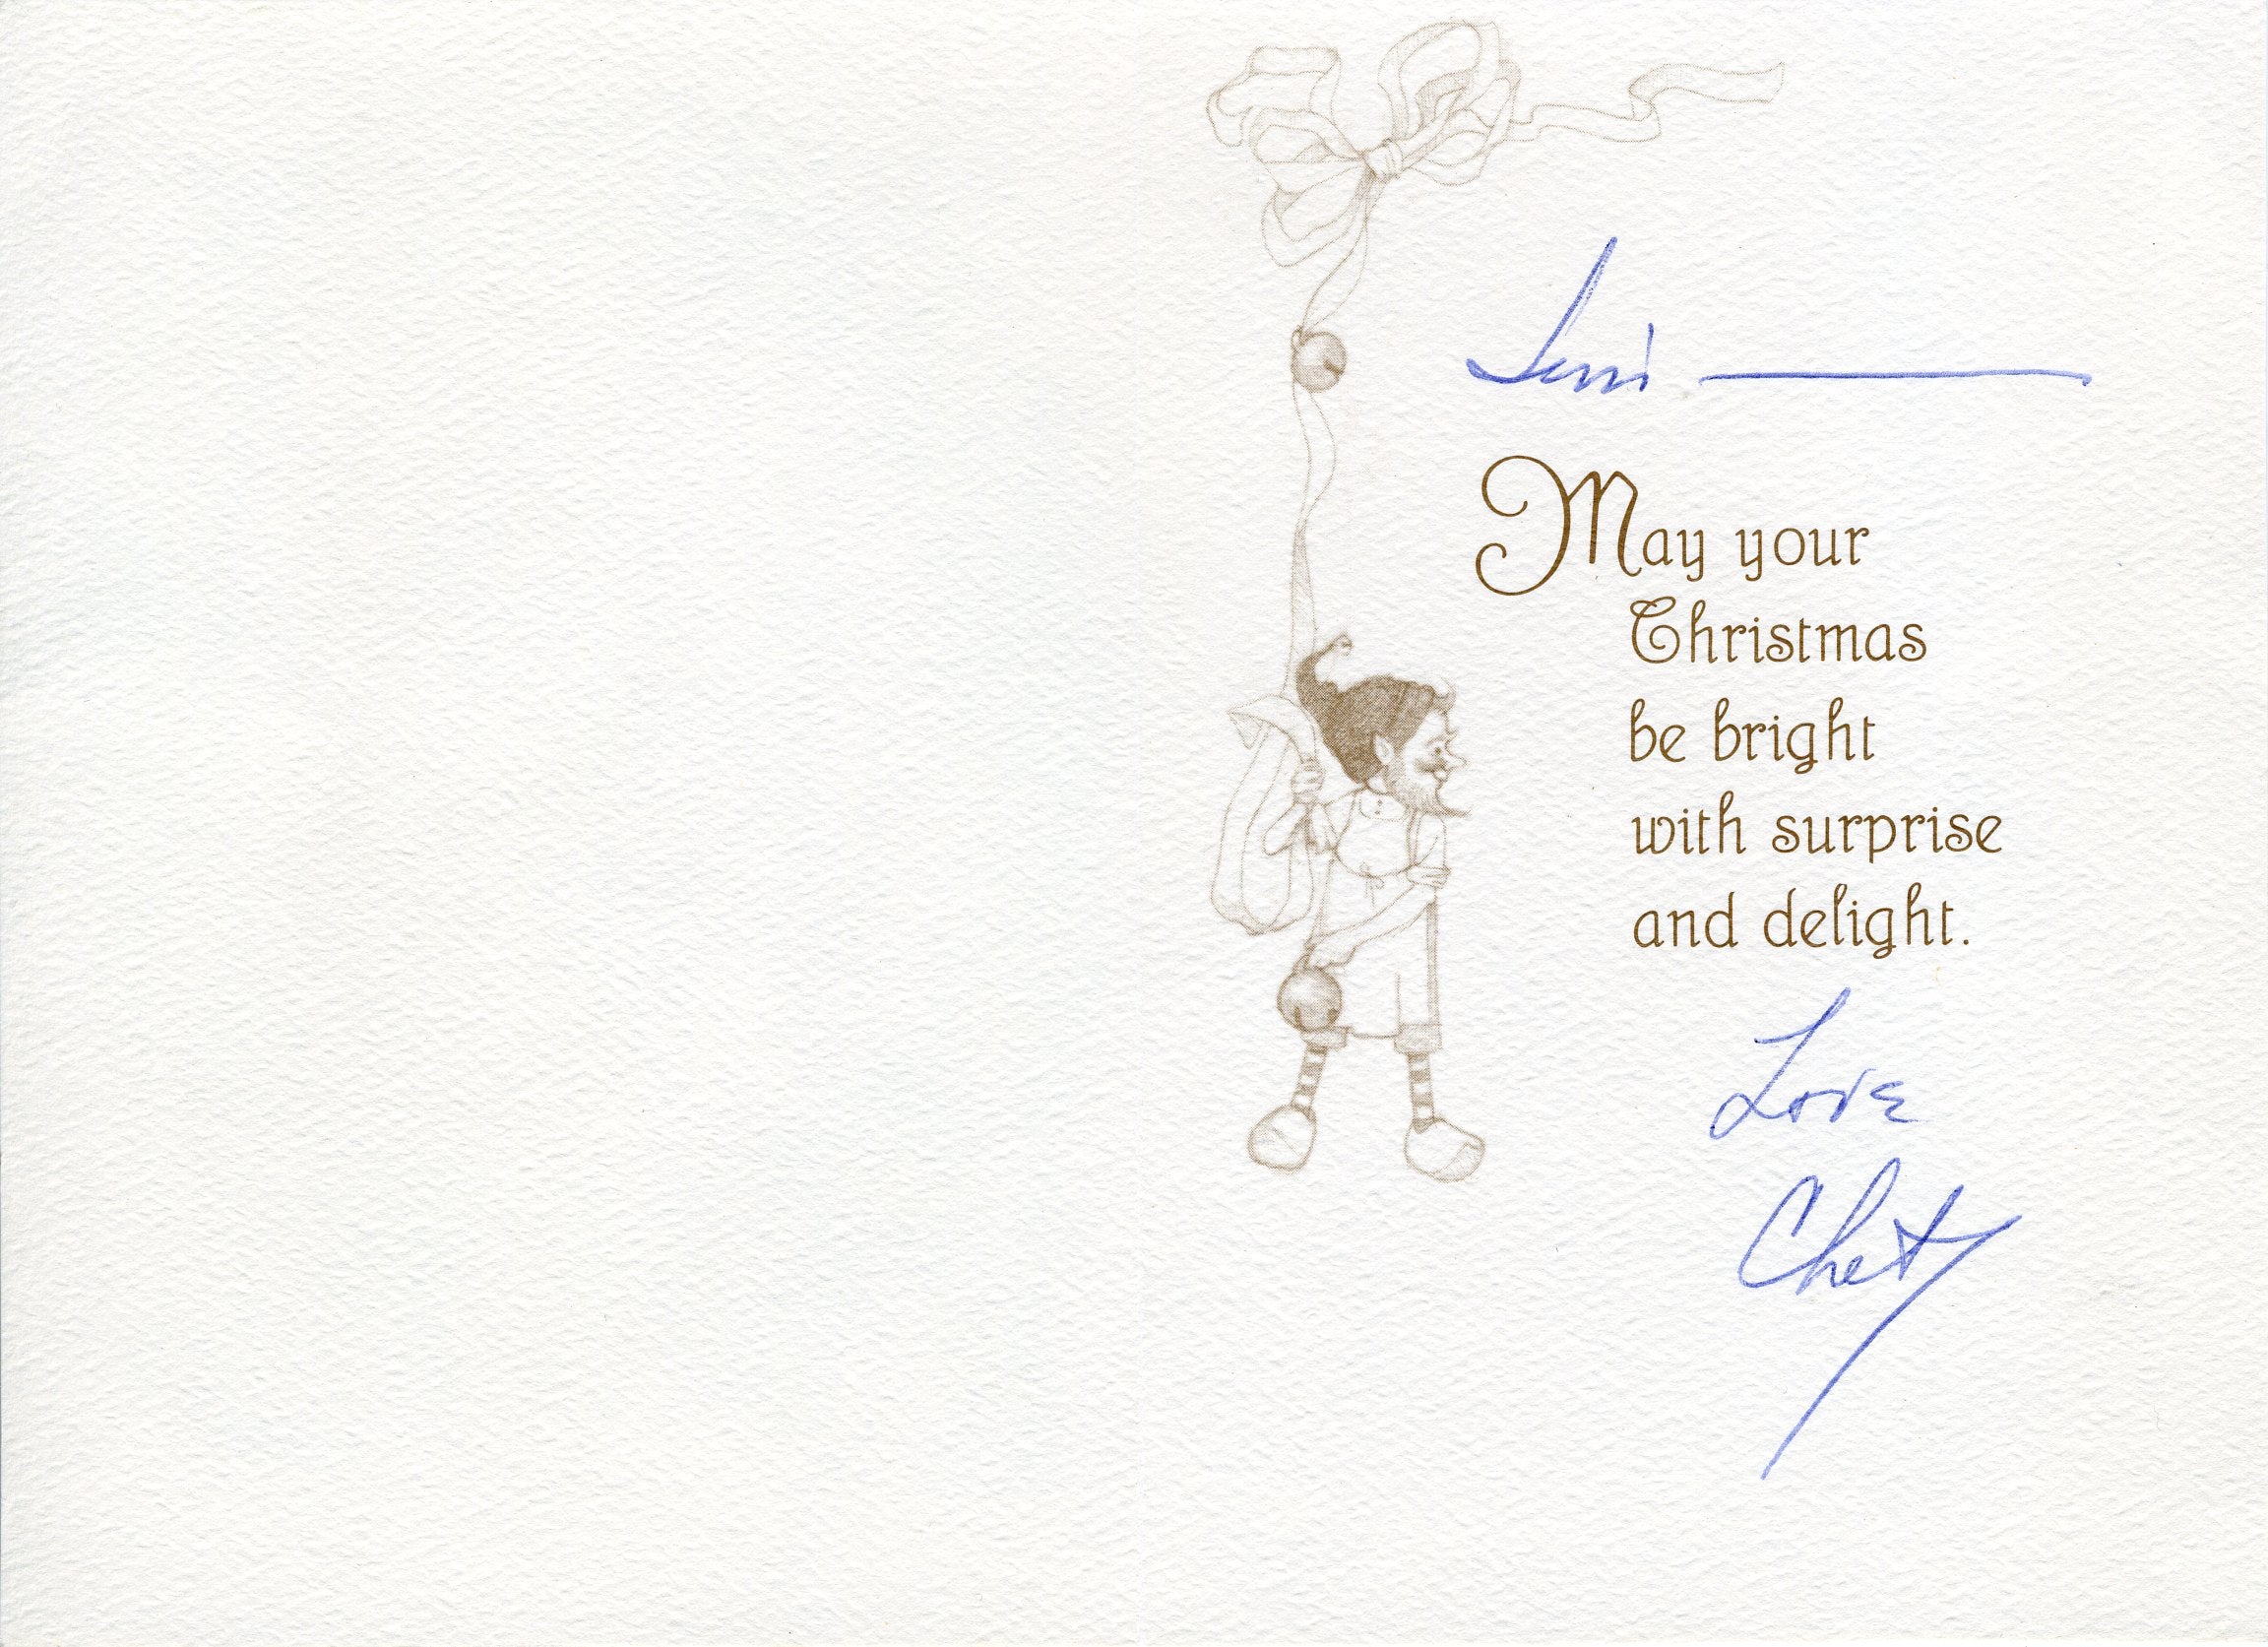 May your
Christmas
be bright
with surprise
and delight.
Love
Chet